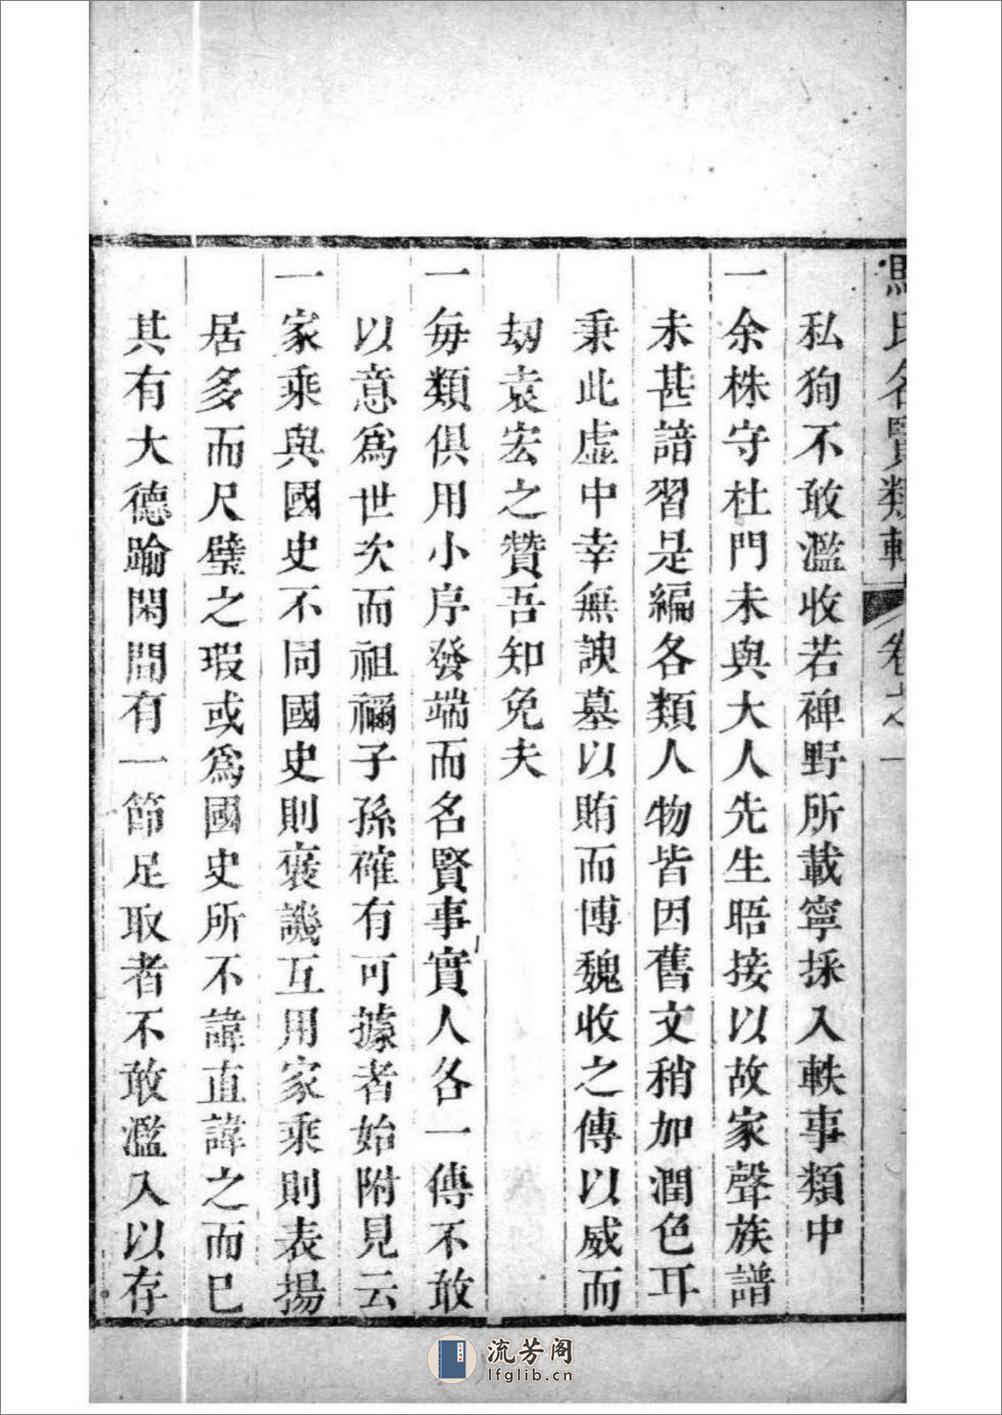 馬氏名賢類輯 卷之一
私狥不敢濫收若裨野所載寧採入軼事類中
一余株守杜門未與大人先生晤接以故家聲族譜
未甚諳習是編各類人物皆因舊文稍加潤色耳
秉此虛中幸無諛墓以賄而愽魏收之傳以威而
刼袁宏之贊吾知免夫
一每類俱用小序發端而名賢事實人各一傳不敢
以意爲世次而祖禰子孫確有可據者始附見云
一家乘與國史不同國史則褒譏互用家乘則表揚
居多而尺璧之瑕或爲國史所不諱直諱之而已
其有大德踰閑間有一節足取者不敢濫入以存
流芳阁
lfglib.cn